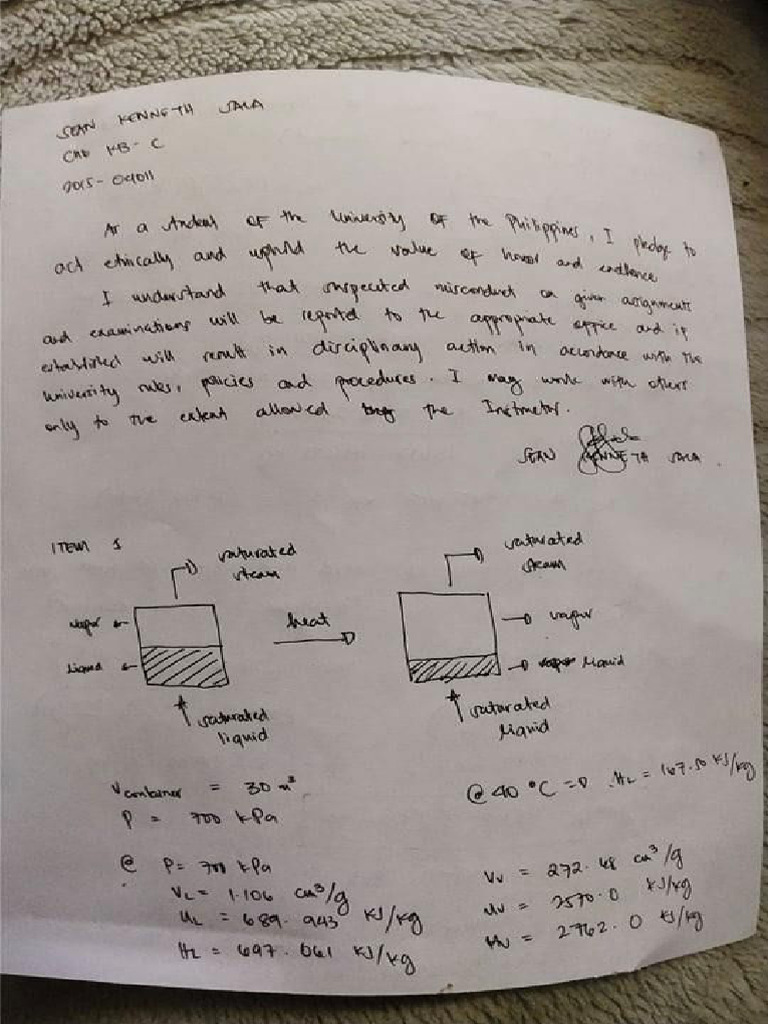 SEAN KENNETH JALA
ChE KB-C
2015-04011
As a student of the University of the Philippines, I pledge to
act ethically and uphold the value of honor and excellence
I understand that suspected misconduct on given assignments
and examinations will be reported to the appropriate office and if
established will result in disciplinary action in accordance with the
University rules, policies and procedures. I may work with others
only to the extent allowed the Instructor.
SEAN KENNETH JALA
ITEM 1
saturated
steam
vapor
liquid
saturated
liquid
heat
saturated
steam
vapor
liquid
saturated
liquid
Vcontainer = 30 m³
P = 700 kPa
@ 40 °C => HL = 167.50 kJ/kg
@ P = 700 kPa
VL = 1.106 cm³/g
UL = 689.943 kJ/kg
HL = 697.061 kJ/kg
Vv = 272.68 cm³/g
Uv = 2570.0 kJ/kg
Hv = 2762.0 kJ/kg